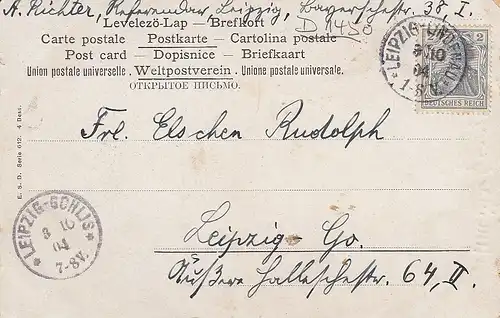 A. Richter, Referendar Leipzig, Bayerschestr. 38 I.
D 1430
Levelező-Lap — Brefkort
Carte postale Postkarte — Cartolina postale
Post card — Dopisnice — Briefkaart
Union postale universelle. Weltpostverein. Unione postale universale.
ОТКРЫТОЕ ПИСЬМО.
LEIPZIG-LINDENAU
3 10
04
1-8 V.
2 2
DEUTSCHES REICH
Frl. Elschen Rudolph
E. S. D. Serie 612. 4 Dess.
LEIPZIG-GOHLIS
3 10
04
7-8V.
Leipzig-Go.
Äußere Halleschestr. 64, II.